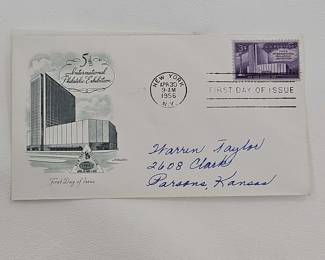 5th
International
Philatelic Exhibition
First Day of Issue
NEW YORK
APR 30
9-AM
1956
N.Y.
FIRST DAY OF ISSUE
3¢
U.S. POSTAGE
Warren Taylor
2608 Clark
Parsons, Kansas